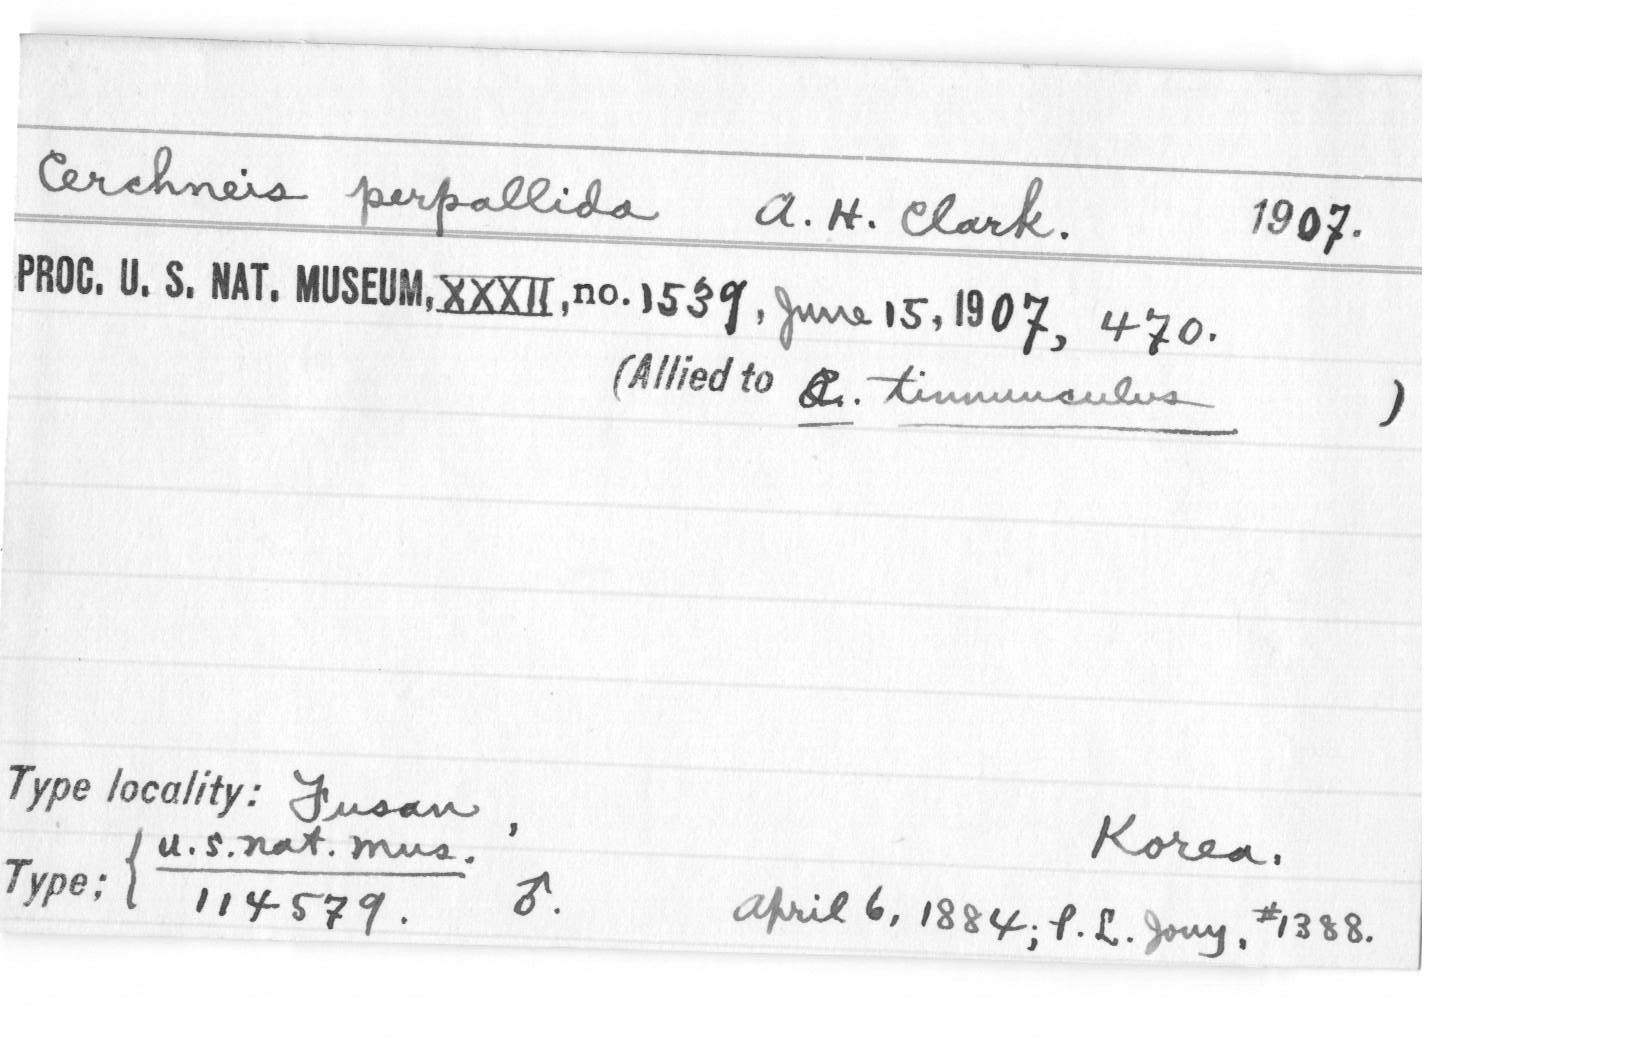 Cerchneis perpallida A. H. Clark. 1907.
PROC. U. S. NAT. MUSEUM, XXXII, no. 1539, June 15, 1907, 470.
(Allied to C. tinnunculus )
Type locality: Fusan, Korea.
Type: { U.S. Nat. Mus.
114579. ♂. April 6, 1884; P. L. Jouy, #1388.